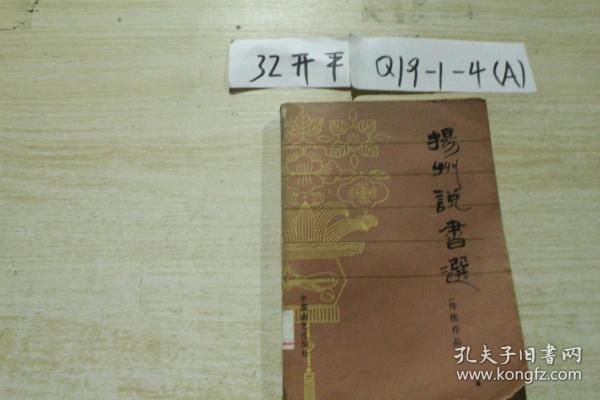 32开平
Q19-1-4(A)
揚州説書選
(传统作品
中国曲艺出版社
孔夫子旧书网
www.kongfz.com